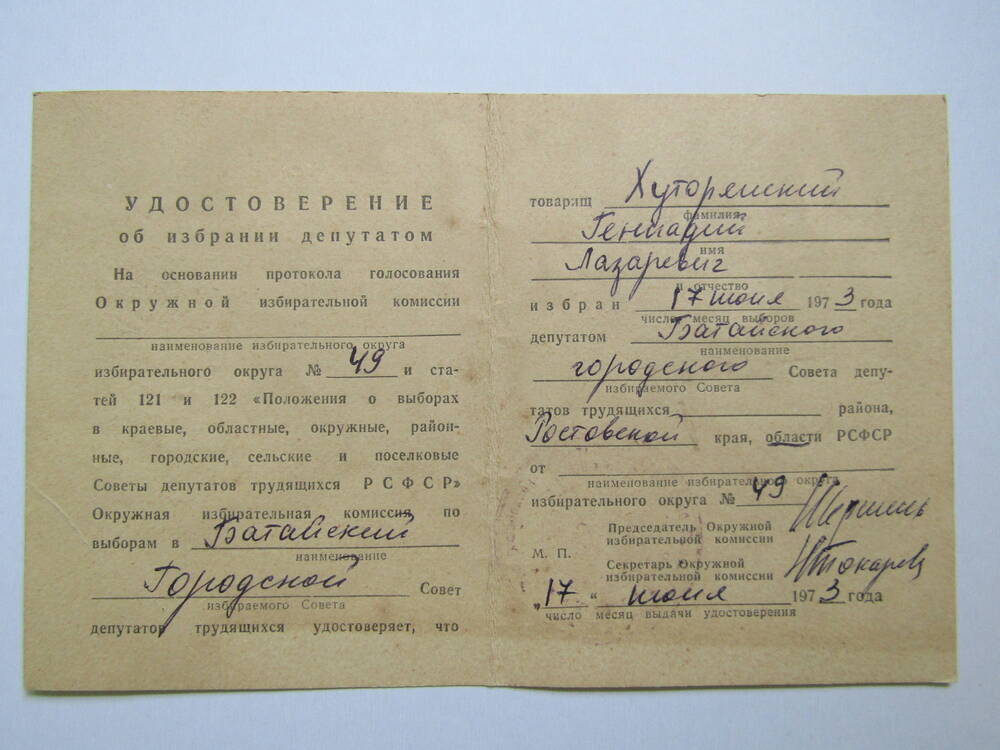 УДОСТОВЕРЕНИЕ
об избрании депутатом
На основании протокола голосования
Окружной избирательной комиссии
наименование избирательного округа
избирательного округа № 49 и ста-
тей 121 и 122 «Положения о выборах
в краевые, областные, окружные, район-
ные, городские, сельские и поселковые
Советы депутатов трудящихся РСФСР»
Окружная избирательная комиссия по
выборам в Батайский
наименование
Городской Совет
избираемого Совета
депутатов трудящихся удостоверяет, что
товарищ Хуторянский
фамилия
Геннадий
имя
Лазаревич
и отчество
избран 17 июня 1973 года
число месяц выборов
депутатом Батайского
наименование
городского Совета депу-
избираемого Совета
татов трудящихся района,
Ростовской края, области РСФСР
от
наименование избирательного округа
избирательного округа № 49
Председатель Окружной
избирательной комиссии
М. П.
Секретарь Окружной
избирательной комиссии
Токарев
„17" июня 1973 года
число месяц выдачи удостоверения